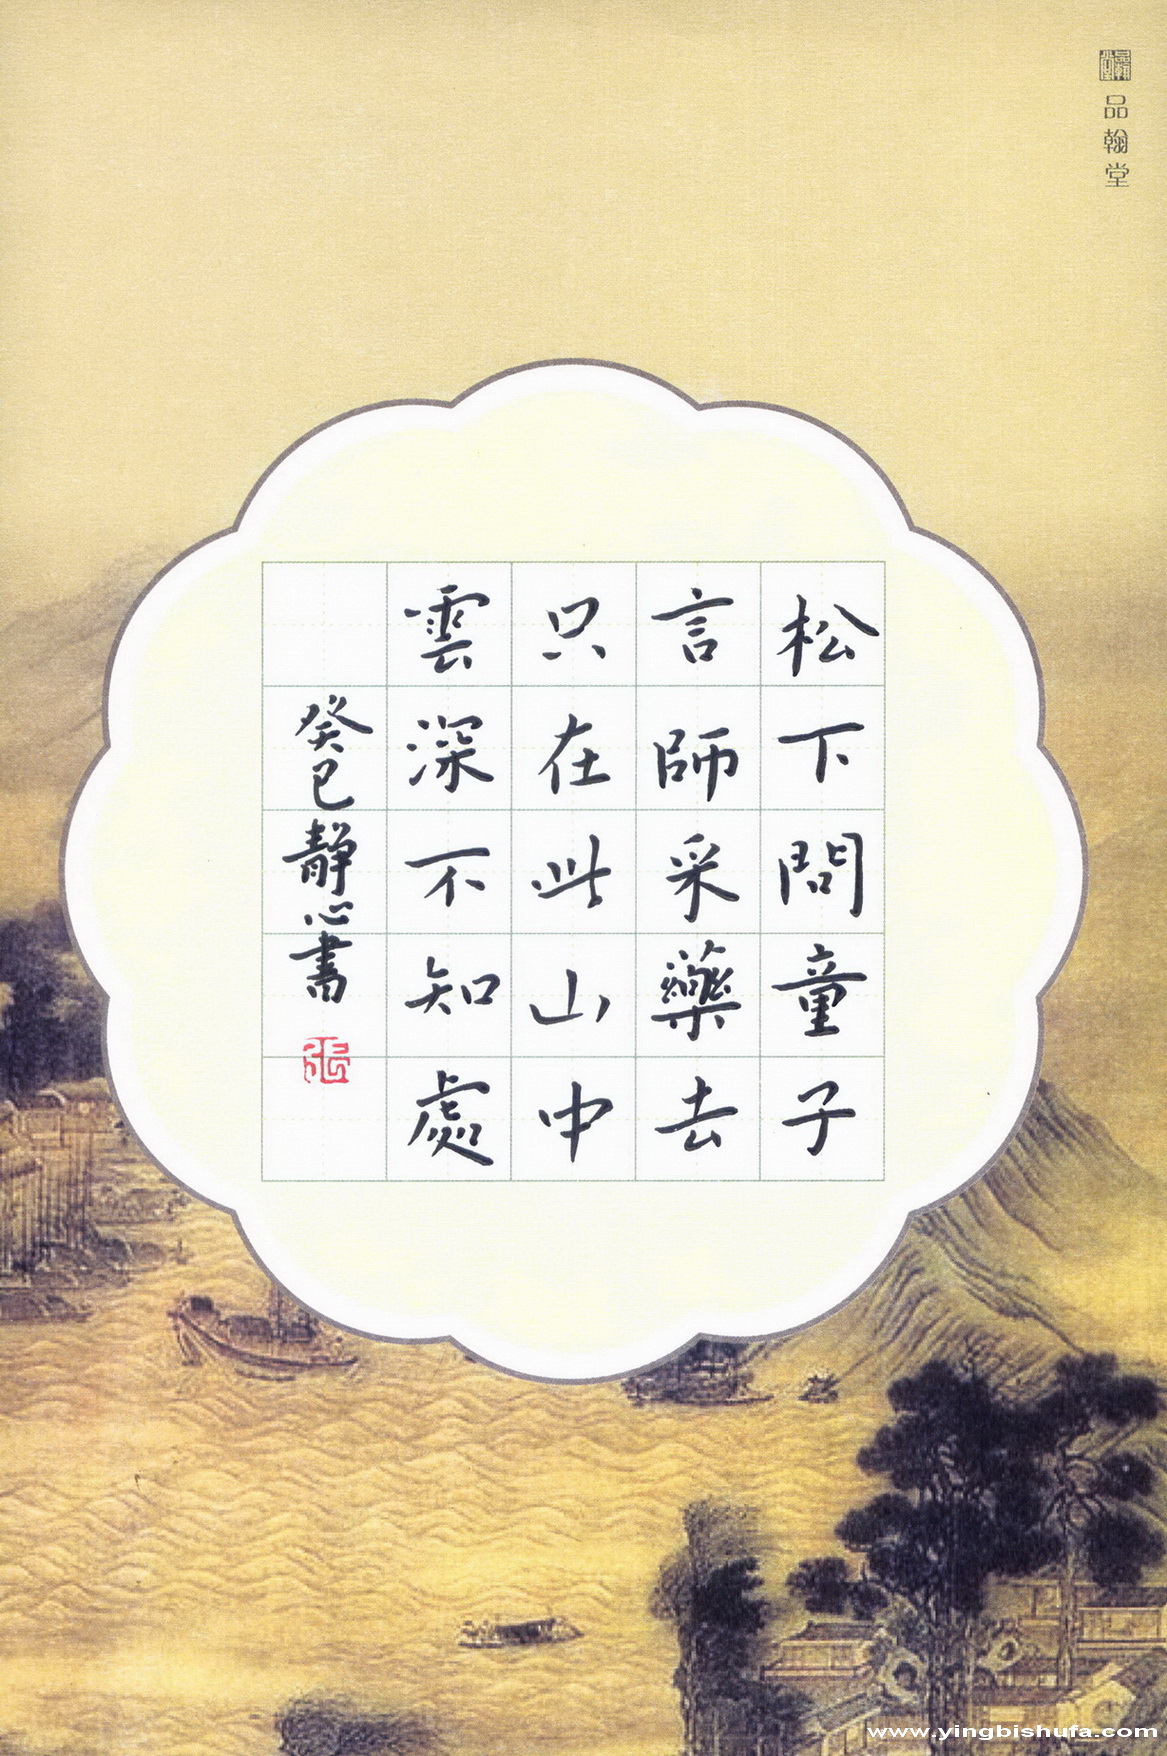 品翰堂
松下問童子
言師采藥去
只在此山中
雲深不知處
癸巳靜心書
www.yingbishufa.com